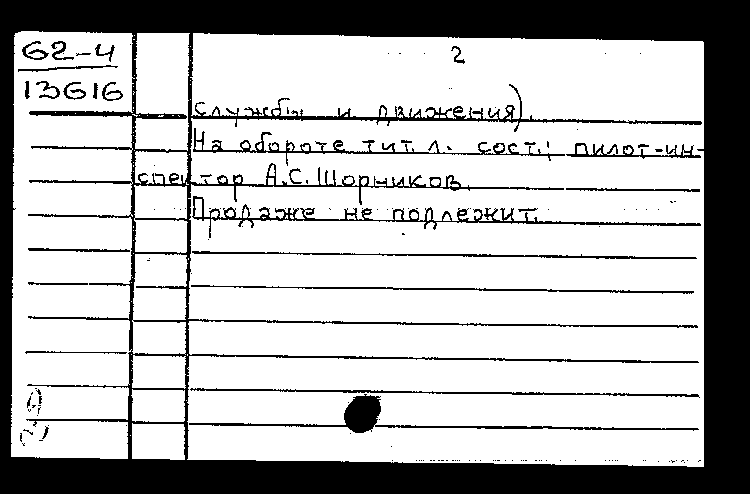 62-4
13616
2
службы и движения).
На обороте тит. л. сост.: пилот-ин-
спектор А.С. Шорников.
Продаже не подлежит.